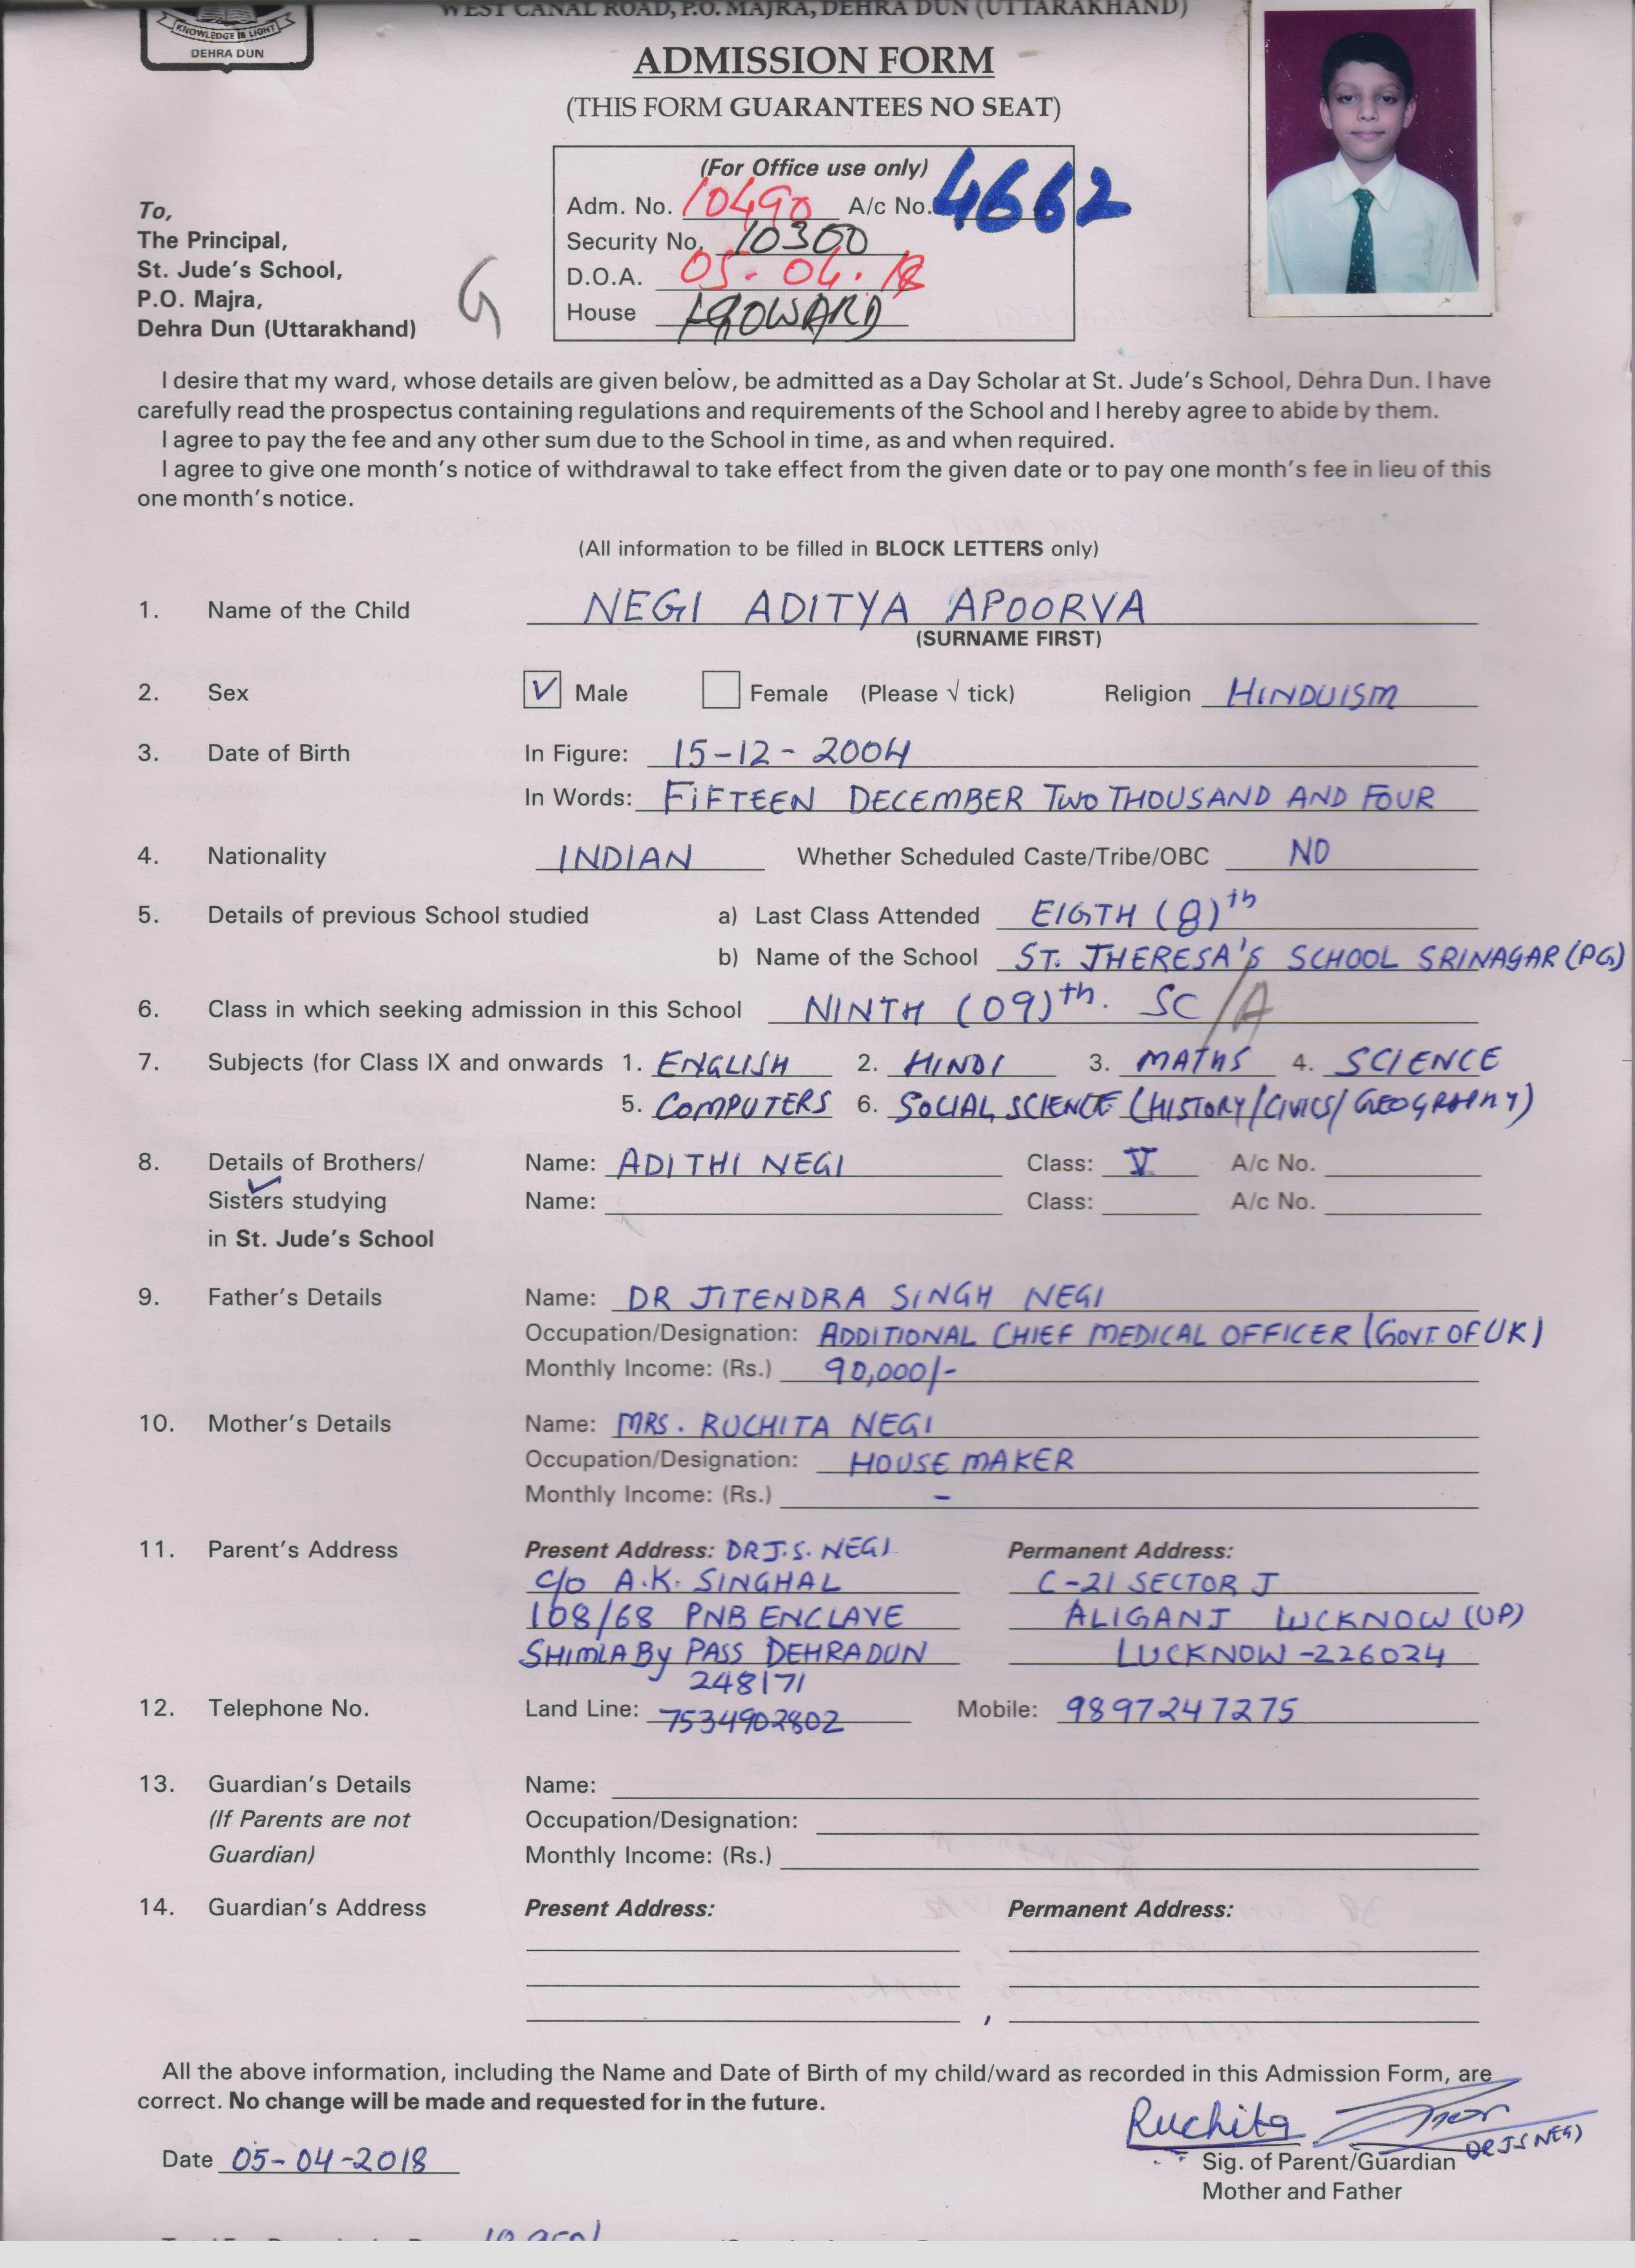 WEST CANAL ROAD, P.O. MAJRA, DEHRA DUN (UTTARAKHAND)
KNOWLEDGE IS LIGHT
DEHRA DUN
ADMISSION FORM
(THIS FORM GUARANTEES NO SEAT)
(For Office use only)
Adm. No. 10490 A/c No. 4662
Security No. 10300
D.O.A. 05-04.18
House HOWARD
To,
The Principal,
St. Jude's School,
P.O. Majra,
Dehra Dun (Uttarakhand)
G
I desire that my ward, whose details are given below, be admitted as a Day Scholar at St. Jude's School, Dehra Dun. I have
carefully read the prospectus containing regulations and requirements of the School and I hereby agree to abide by them.
I agree to pay the fee and any other sum due to the School in time, as and when required.
I agree to give one month's notice of withdrawal to take effect from the given date or to pay one month's fee in lieu of this
one month's notice.
(All information to be filled in BLOCK LETTERS only)
1. Name of the Child NEGI ADITYA APOORVA
(SURNAME FIRST)
2. Sex V Male Female (Please √ tick) Religion HINDUISM
3. Date of Birth In Figure: 15-12-2004
In Words: FIFTEEN DECEMBER TWO THOUSAND AND FOUR
4. Nationality INDIAN Whether Scheduled Caste/Tribe/OBC NO
5. Details of previous School studied a) Last Class Attended EIGTH (8)th
b) Name of the School ST. THERESA'S SCHOOL SRINAGAR (PG)
6. Class in which seeking admission in this School NINTH (09)th. SC/A
7. Subjects (for Class IX and onwards 1. ENGLISH 2. HINDI 3. MATHS 4. SCIENCE
5. COMPUTERS 6. SOCIAL SCIENCE (HISTORY/CIVICS/GEOGRAPHY)
8. Details of Brothers/ Name: ADITHI NEGI Class: V A/c No.
Sisters studying Name: Class: A/c No.
in St. Jude's School
9. Father's Details Name: DR JITENDRA SINGH NEGI
Occupation/Designation: ADDITIONAL CHIEF MEDICAL OFFICER (GOVT OF UK)
Monthly Income: (Rs.) 90,000/-
10. Mother's Details Name: MRS. RUCHITA NEGI
Occupation/Designation: HOUSE MAKER
Monthly Income: (Rs.) -
11. Parent's Address Present Address: DR J.S. NEGI Permanent Address:
C/O A.K. SINGHAL C-21 SECTOR J
108/68 PNB ENCLAVE ALIGANJ LUCKNOW (UP)
SHIMLA By PASS DEHRADUN LUCKNOW-226024
248171
12. Telephone No. Land Line: 7534902802 Mobile: 9897247275
13. Guardian's Details Name:
(If Parents are not Occupation/Designation:
Guardian) Monthly Income: (Rs.)
14. Guardian's Address Present Address: Permanent Address:
All the above information, including the Name and Date of Birth of my child/ward as recorded in this Admission Form, are
correct. No change will be made and requested for in the future.
Ruchita
DR J S NEGI
Date 05-04-2018 Sig. of Parent/Guardian
Mother and Father